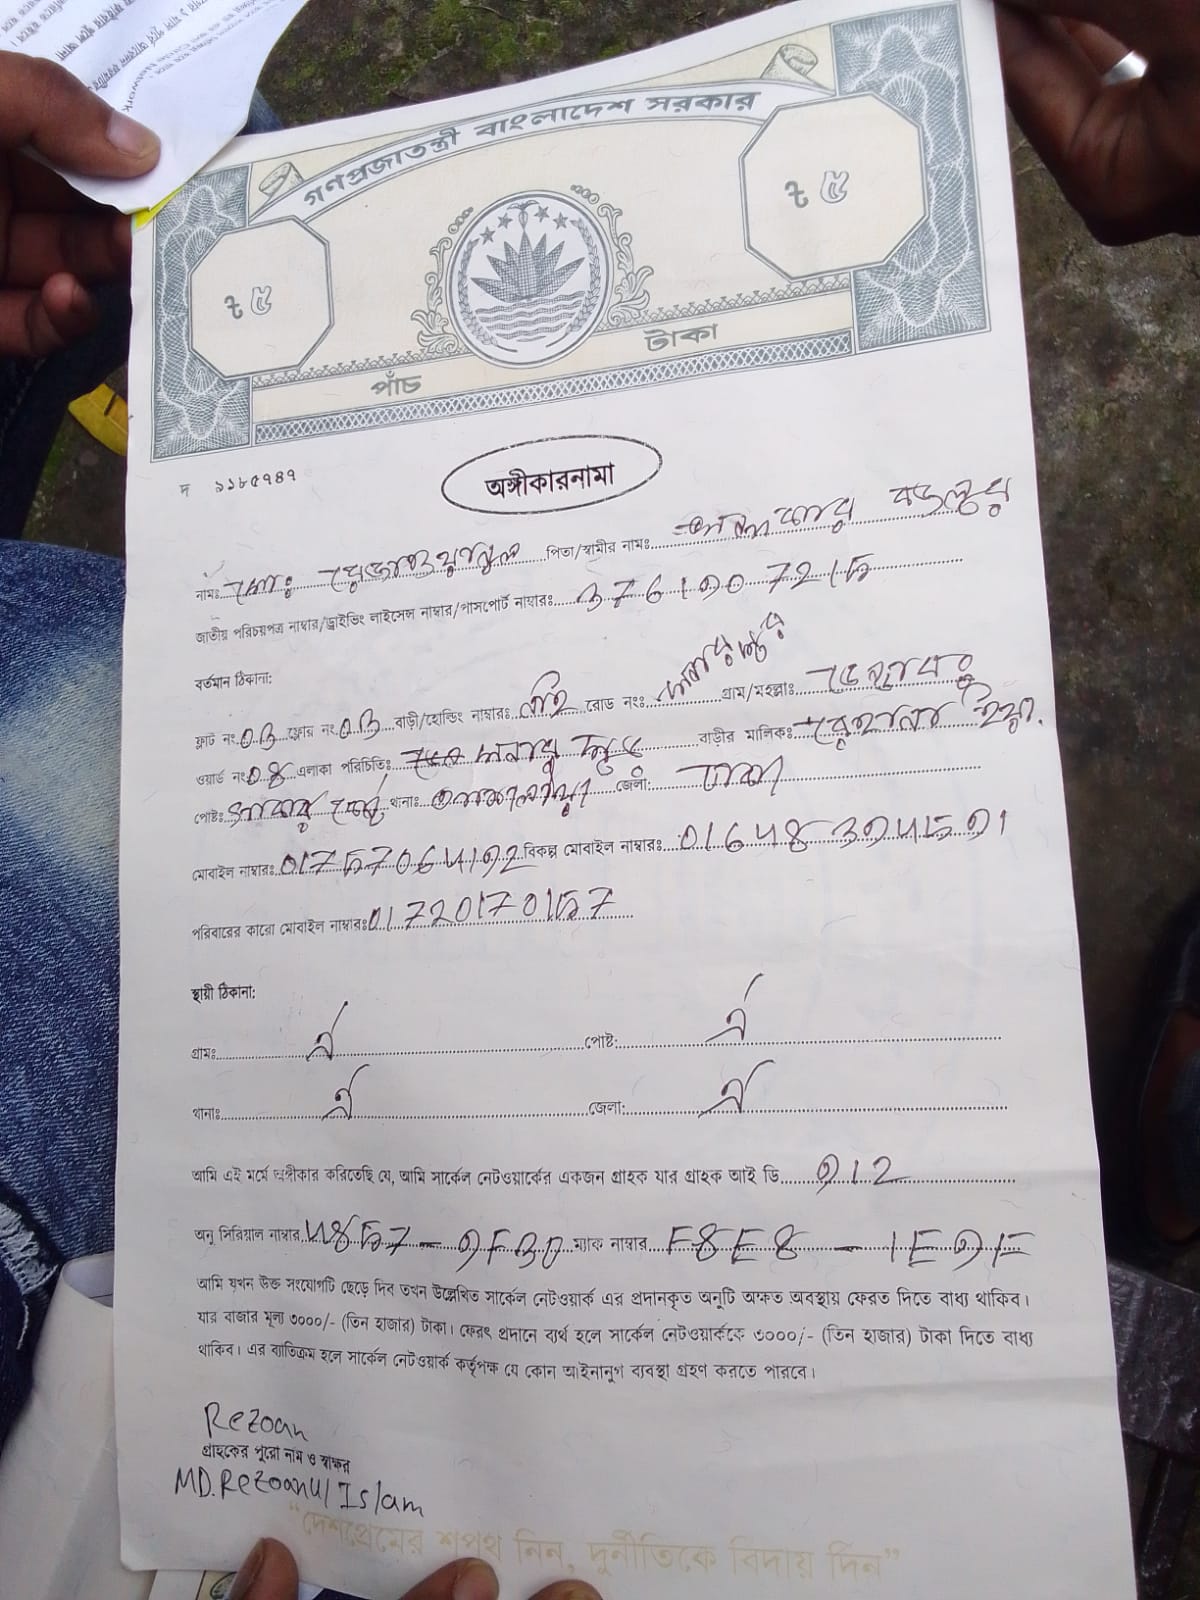 গণপ্রজাতন্ত্রী বাংলাদেশ সরকার
৳ ৫
৳ ৫
পাঁচ টাকা
দ ৯১৮৫৭৪৭
অঙ্গীকারনামা
নামঃ মোঃ রেজোওয়ানুল পিতা/স্বামীর নাম:
জাতীয় পরিচয়পত্র নাম্বার/ড্রাইভিং লাইসেন্স নাম্বার/পাসপোর্ট নাম্বারঃ 3761907215
বর্তমান ঠিকানা:
ফ্লাট নং 03 ফ্লোর নং 03 বাড়ী/হোল্ডিং নাম্বারঃ নাই রোড নং: গ্রাম/মহল্লাঃ
ওয়ার্ড নং 08 এলাকা পরিচিতিঃ বাড়ীর মালিকঃ
পোষ্টঃ থানাঃ জেলা: ঢাকা
মোবাইল নাম্বারঃ 01757064192 বিকল্প মোবাইল নাম্বারঃ 01648394591
পরিবারের কারো মোবাইল নাম্বারঃ 01720170157
স্থায়ী ঠিকানা:
গ্রামঃ ঐ পোষ্ট: ঐ
থানাঃ ঐ জেলা: ঐ
আমি এই মর্মে অঙ্গীকার করিতেছি যে, আমি সার্কেল নেটওয়ার্কের একজন গ্রাহক যার গ্রাহক আই ডি 912
অনু সিরিয়াল নাম্বার 4857-9F30 ম্যাক নাম্বার F8E8 - 1E9F
আমি যখন উক্ত সংযোগটি ছেড়ে দিব তখন উল্লেখিত সার্কেল নেটওয়ার্ক এর প্রদানকৃত অনুটি অক্ষত অবস্থায় ফেরত দিতে বাধ্য থাকিব।
যার বাজার মূল্য ৩০০০/- (তিন হাজার) টাকা। ফেরৎ প্রদানে ব্যর্থ হলে সার্কেল নেটওয়ার্ককে ৩০০০/- (তিন হাজার) টাকা দিতে বাধ্য
থাকিব। এর ব্যতিক্রম হলে সার্কেল নেটওয়ার্ক কর্তৃপক্ষ যে কোন আইনানুগ ব্যবস্থা গ্রহণ করতে পারবে।
Rezoan
গ্রাহকের পুরো নাম ও স্বাক্ষর
MD. Rezoanul Islam
“দেশপ্রেমের শপথ নিন, দুর্নীতিকে বিদায় দিন”